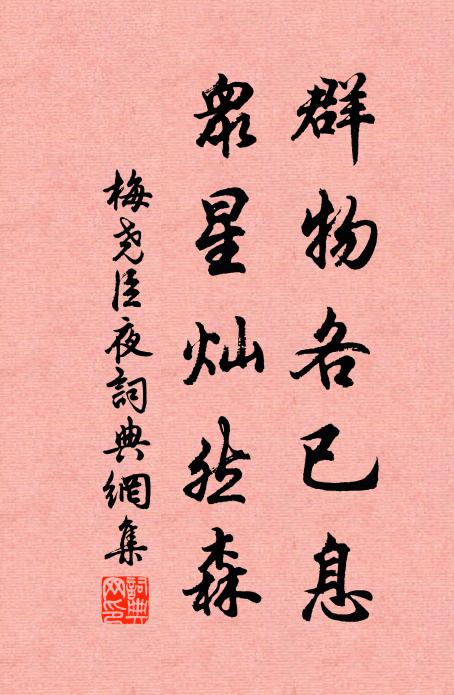 群物各已息
眾星灿然森
梅尧臣夜詞典網集
詞典网印